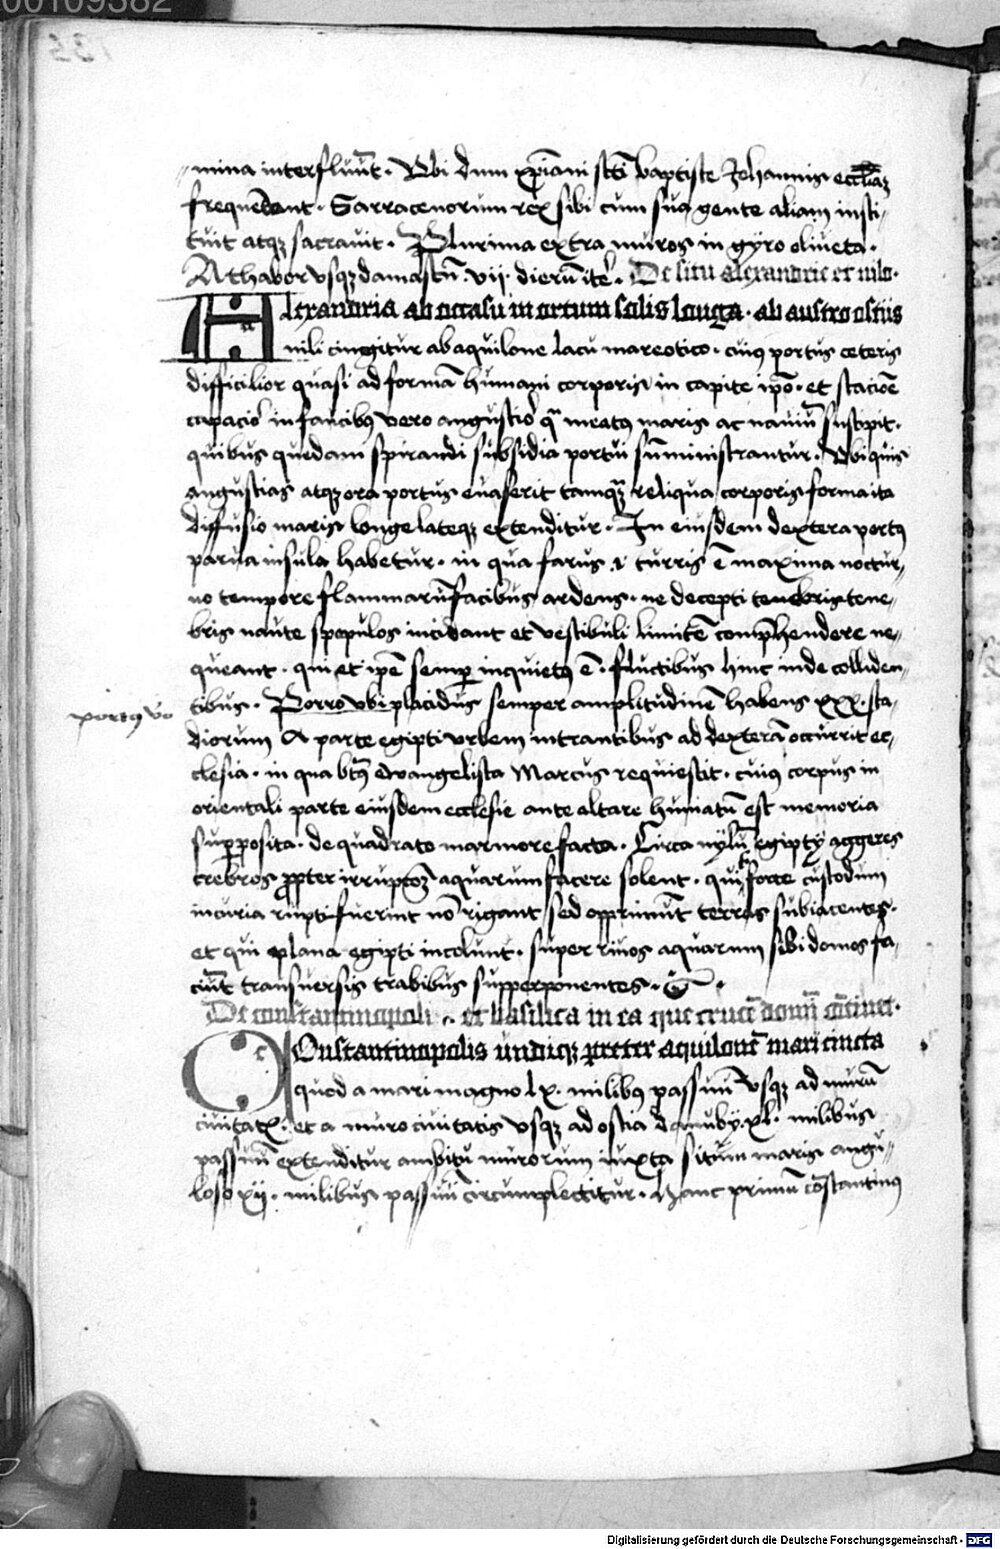 00109382
135
mina interfluūt · Vbi dum xp̄iani scti baptiste Johannis eccl̄iaʒ
frequētant · Sarracenorum rex sibi cum sua gente aliam insti-
tuit atqʒ sacrauit · Plurima extra muros in gyro oliueta ·
A thabor vsqʒ damascū · vii · dierū itē · De situ alexandrie et nilo ·
Alexandria ab occasu in ortum solis longa · ab austro ostiis
nili cingitur ab aquilone lacu mareotico · cuiꝰ portus ceteris
difficilior quasi ad formā humani corporis in capite ip̄o · et stacīoē
capacior in faucibꝰ vero angustior qᵃ meatꝰ maris ac nauiū suscipit ·
quibus quedam spirandi subsidia portui sūministrantur · Vbi quis
angustias atqʒ ora portus euaserit tamqᵃ reliqua corporis forma ita
diffusio maris longe lateqʒ extenditur · In eiusdem dextera portꝰ
parua insula habetur · in qua farus · i · turris ē maxima noctur-
no tempore flammarū facibus ardens · ne decepti tenebris tene-
bris naute scopulos incidant et vestibuli limitē comp̄hendere ne-
queant · qui et ip̄e semꝑ inquietꝰ ē · fluctibus hinc inde colliden-
tibus · Porro vbi placidus semper amplitudinē habens xxx · sta-
portꝰ vō
diorum A parte egipti vrbem intrantibus ad dexterā occurrit ec-
clesia · in qua btꝰ ewangelista Marcus requiescit · cuius corpus in
orientali parte eiusdem ecclesie ante altare humatū est memoria
suꝑposita · de quadrato marmore facta · Circa nylū egipty aggeres
crebros ꝓpter irrupcōeʒ aquarum facere solent · qui forte custodum
incuria rupti fuerint nō rigant sed opprimūt terras subiacentes ·
et qui plana egipti incolunt · super riuos aquarum sibi domos fa-
ciūt transuersis trabibus supperponentes ·
De constantinopoli · et basilica in ea que crucē domī cōtinet ·
Constantinopolis undiqʒ preter aquilonē mari cincta
quod a mari magno lx · milibꝰ passuū vsqʒ ad murū
ciuitatis · et a muro ciuitatis vsqʒ ad ostia danuby · xl · milibus
passuū extenditur ambitu murorum iuxta situm maris angu-
loso xii · milibus passuū circumplectitur · Hanc primū cōstantinus
Digitalisierung gefördert durch die Deutsche Forschungsgemeinschaft - DFG